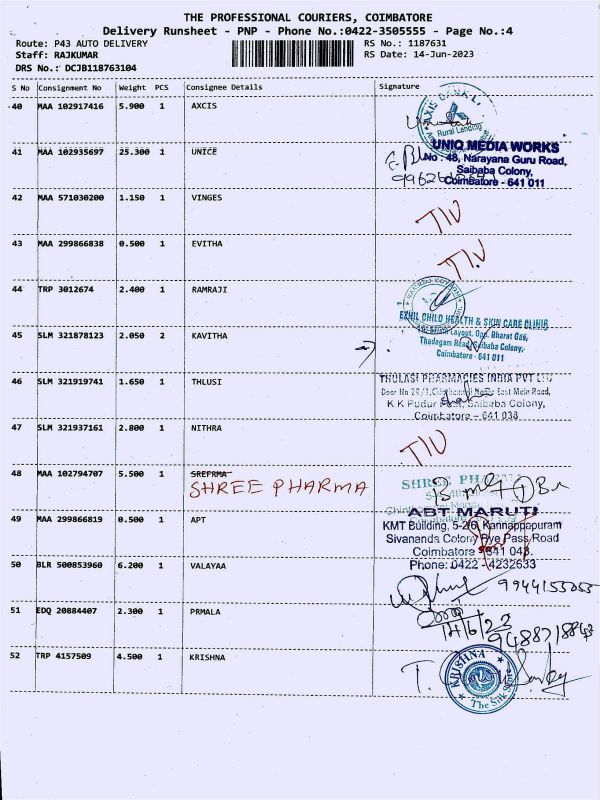 THE PROFESSIONAL COURIERS, COIMBATORE
Delivery Runsheet - PNP - Phone No.:0422-3505555 - Page No.:4
Route: P43 AUTO DELIVERY RS No.: 1187631
Staff: RAJKUMAR RS Date: 14-Jun-2023
DRS No.: DCJB118763104
S No Consignment No Weight PCS Consignee Details Signature
40 MAA 102917416 5.900 1 AXCIS
AXIS BANK
Rural Lending
41 MAA 102935697 25.300 1 UNICE
UNIQ MEDIA WORKS
No : 48, Narayana Guru Road,
Saibaba Colony,
Coimbatore - 641 011
42 MAA 571030200 1.150 1 VINGES
TIV
43 MAA 299866838 0.500 1 EVITHA
TIV
44 TRP 3012674 2.400 1 RAMRAJI
45 SLM 321878123 2.050 2 KAVITHA
EZHIL CHILD HEALTH & SKIN CARE CLINIC
Layout, Opp. Bharat Gas,
Thadagam Road, Saibaba Colony,
Coimbatore - 641 011
46 SLM 321919741 1.650 1 THLUSI
THULASI PHARMACIES INDIA PVT LTD
East Mein Road,
K K Pudur Post, Saibaba Colony,
Coimbatore - 641 038
47 SLM 321937161 2.800 1 NITHRA
TIV
48 MAA 102794707 5.500 1 SREFRMA
SHREE PHARMA
SHREE PHARMA
49 MAA 299866819 0.500 1 APT
ABT MARUTI
KMT Building, 5-2/6, Kannappapuram
Sivananda Colony Bye Pass Road
Coimbatore - 641 043.
Phone: 0422 - 4232633
50 BLR 500853960 6.200 1 VALAYAA
51 EDQ 20884407 2.300 1 PRMALA
14/6/23
52 TRP 4157509 4.500 1 KRISHNA
KRISHNA
The Silk Store